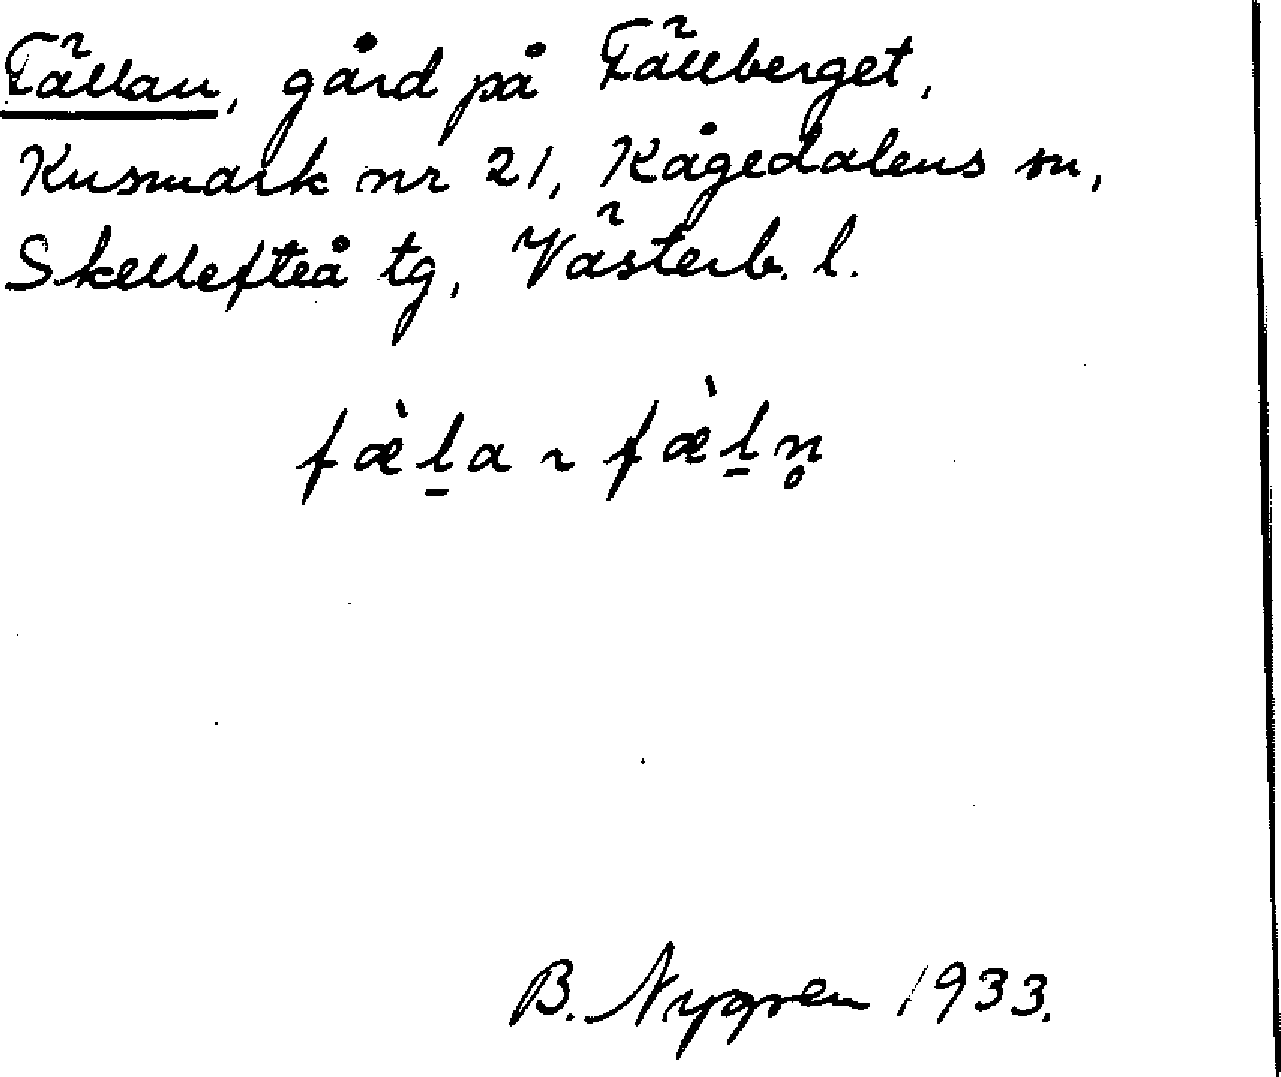 Fällan, gård på Fällberget,
Kusmark nr 21, Kågedalens sn,
Skellefteå tg, Västerb. l.
fæ̀l̠a ~ fæ̀l̠n̥
B. Nygren 1933.